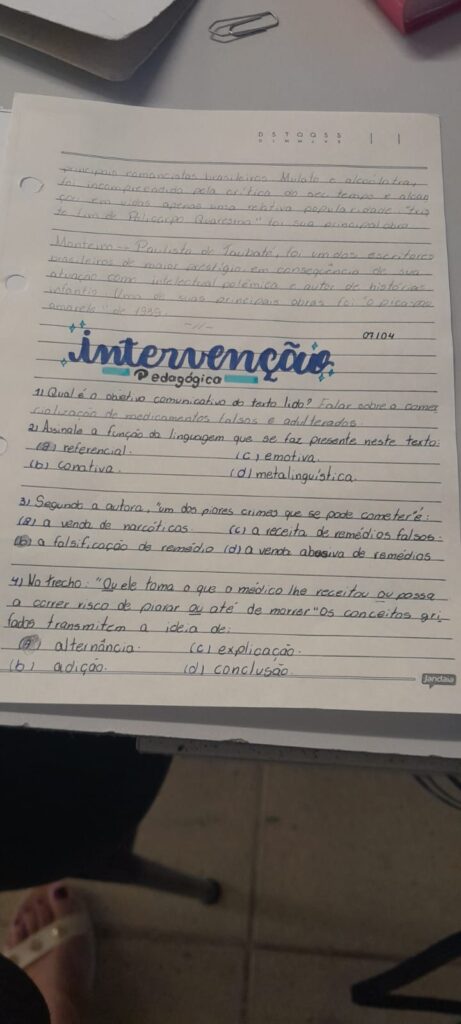 D S T Q Q S S
D L M M J V S
principais romancistas brasileiros Mulato e alcoólatra,
foi incompreendido pela crítica do seu tempo e alcan
çou em vidas apenas uma relativa popularidade "tris
te fim de Policarpo Quaresma" foi sua principal obra.
Monteiro → Paulista de Taubaté, foi um dos escritores
brasileiros de maior prestígio, em consequência de sua
atuação como intelectual polêmica e autor de histórias
infantis. Uma de suas principais obras foi "O pica-pau
amarelo" de 1939.
-//-
07/04
intervenção
Pedagógica
1) Qual é o objetivo comunicativo do texto lido? Falar sobre a comer
cialização de medicamentos falsos e adulterados.
2) Assinale a função da linguagem que se faz presente neste texto:
(a) referencial. (c) emotiva.
(b) conativa. (d) metalinguística.
3) Segundo a autora, "um dos piores crimes que se pode cometer" é:
(a) a venda de narcóticos. (c) a receita de remédios falsos.
(b) a falsificação de remédio (d) a venda abusiva de remédios
4) No trecho: "Ou ele toma o que o médico lhe receitou ou passa
a correr risco de piorar ou até de morrer" Os conceitos gri,
fados transmitem a ideia de:
(a) alternância. (c) explicação.
(b) adição. (d) conclusão
Jandaia